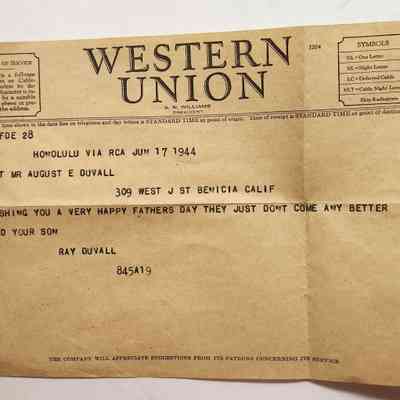 OF SERVICE
WESTERN
UNION
1204
A. N. WILLIAMS
PRESIDENT
SYMBOLS
NL = Day Letter
NL = Night Letter
LC = Deferred Cable
NLT = Cable Night Letter
Ship Radiogram
time shown in the date line on telegrams and day letters is STANDARD TIME at point of origin. Time of receipt is STANDARD TIME at point of destination
FDE 28
HONOLULU VIA RCA JUN 17 1944
T MR AUGUST E DUVALL
309 WEST J ST BENICIA CALIF
SHING YOU A VERY HAPPY FATHERS DAY THEY JUST DONT COME ANY BETTER
D YOUR SON
RAY DUVALL
845A19
THE COMPANY WILL APPRECIATE SUGGESTIONS FROM ITS PATRONS CONCERNING ITS SERVICE